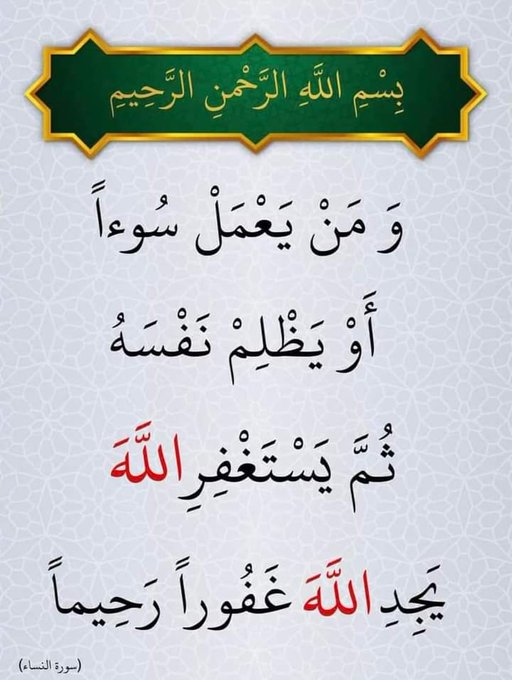 بِسْمِ اللَّهِ الرَّحْمنِ الرَّحِيمِ
وَ مَنْ يَعْمَلْ سُوءاً
أَوْ يَظْلِمْ نَفْسَهُ
ثُمَّ يَسْتَغْفِرِ اللَّهَ
يَجِدِ اللَّهَ غَفُوراً رَحِيماً
(سورة النساء)